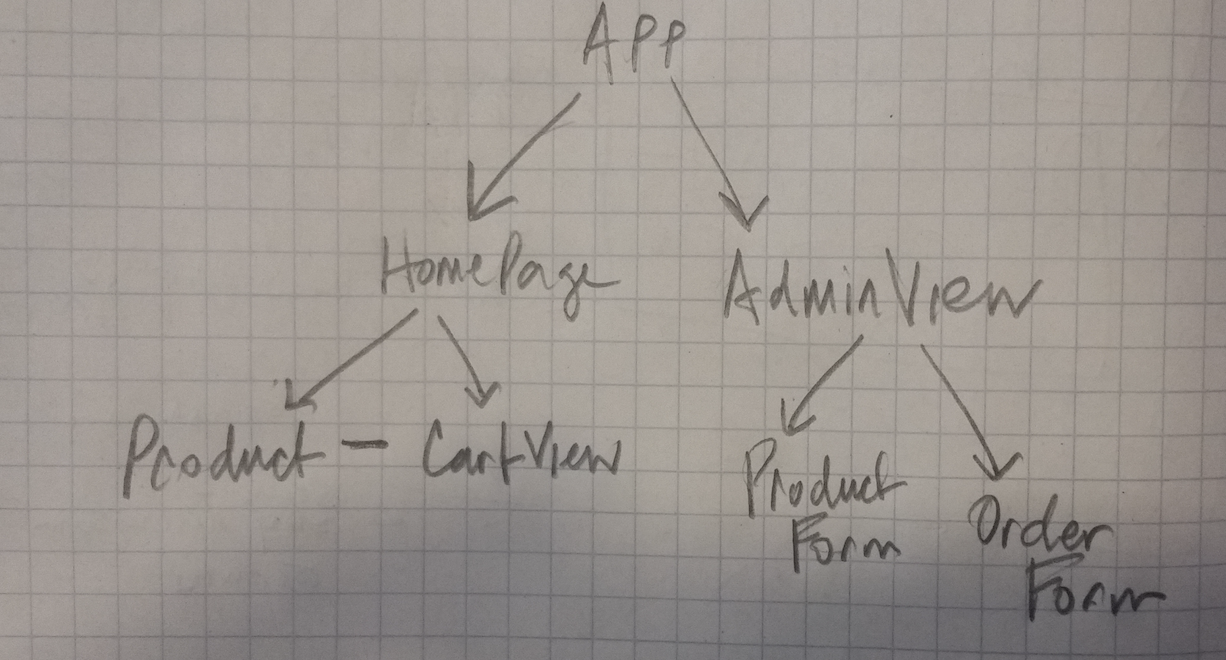 App
HomePage AdminView
Product - CartView
Product
Form
Order
Form